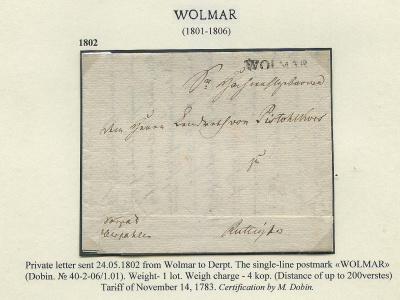 WOLMAR
(1801-1806)
1802
WOLMAR
dem Herrn Landrath von Pistohlkors
zu
Private letter sent 24.05.1802 from Wolmar to Derpt. The single-line postmark «WOLMAR»
(Dobin. № 40-2-06/1.01). Weight- 1 lot. Weigh charge - 4 kop. (Distance of up to 200verstes)
Tariff of November 14, 1783. Certification by M. Dobin.